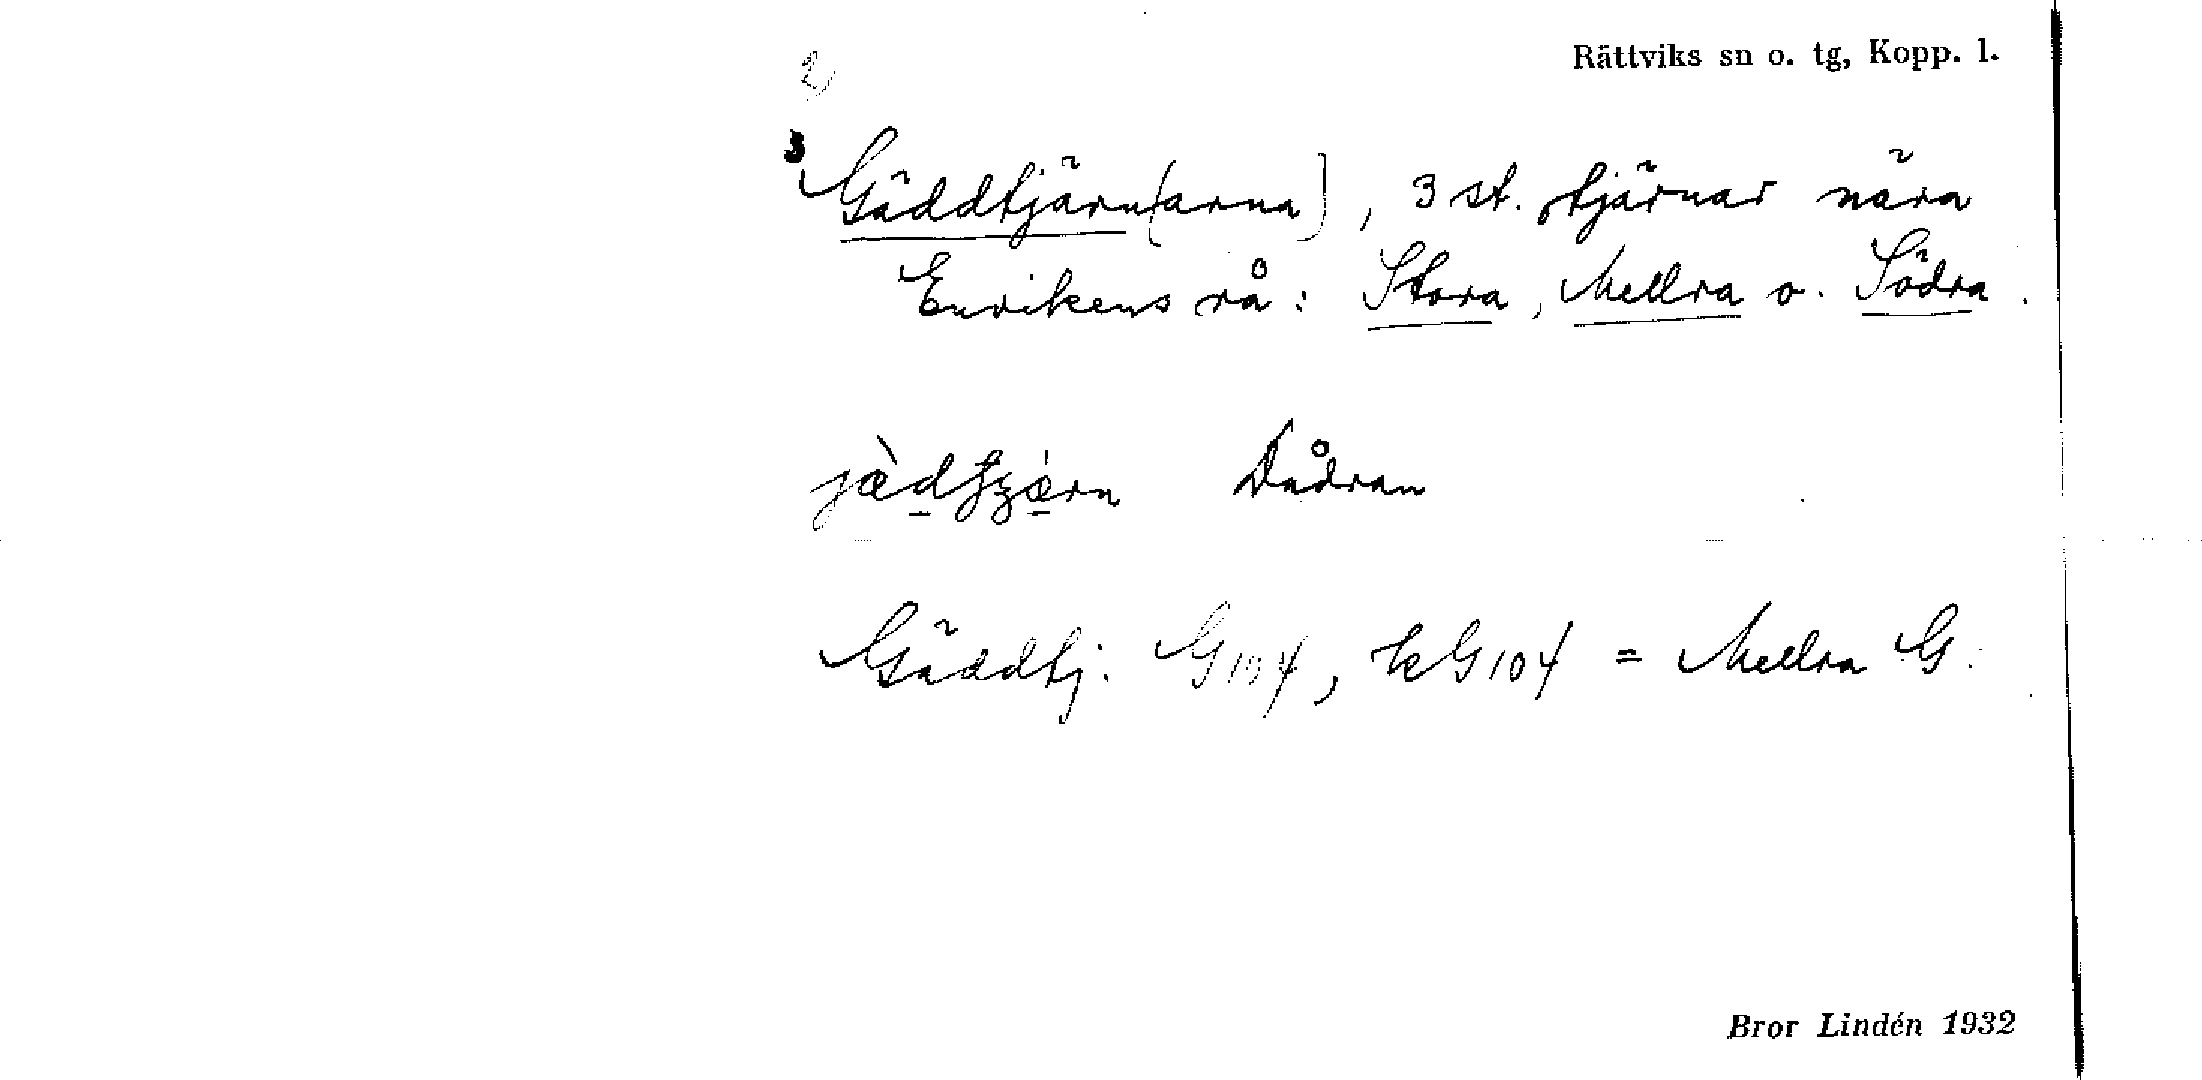 Rättviks sn o. tg, Kopp. l.
2)
Gäddtjärn(arna), 3 st. tjärnar nära
Enrikens rå: Stora, Mellra o. Södra.
Dådran
Gäddtj. G104, kG104 = Mellra G.
Bror Lindén 1932